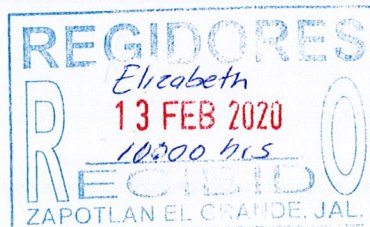 REGIDORES
Elizabeth
13 FEB 2020
10:00 hrs
RECIBIDO
ZAPOTLAN EL GRANDE, JAL.